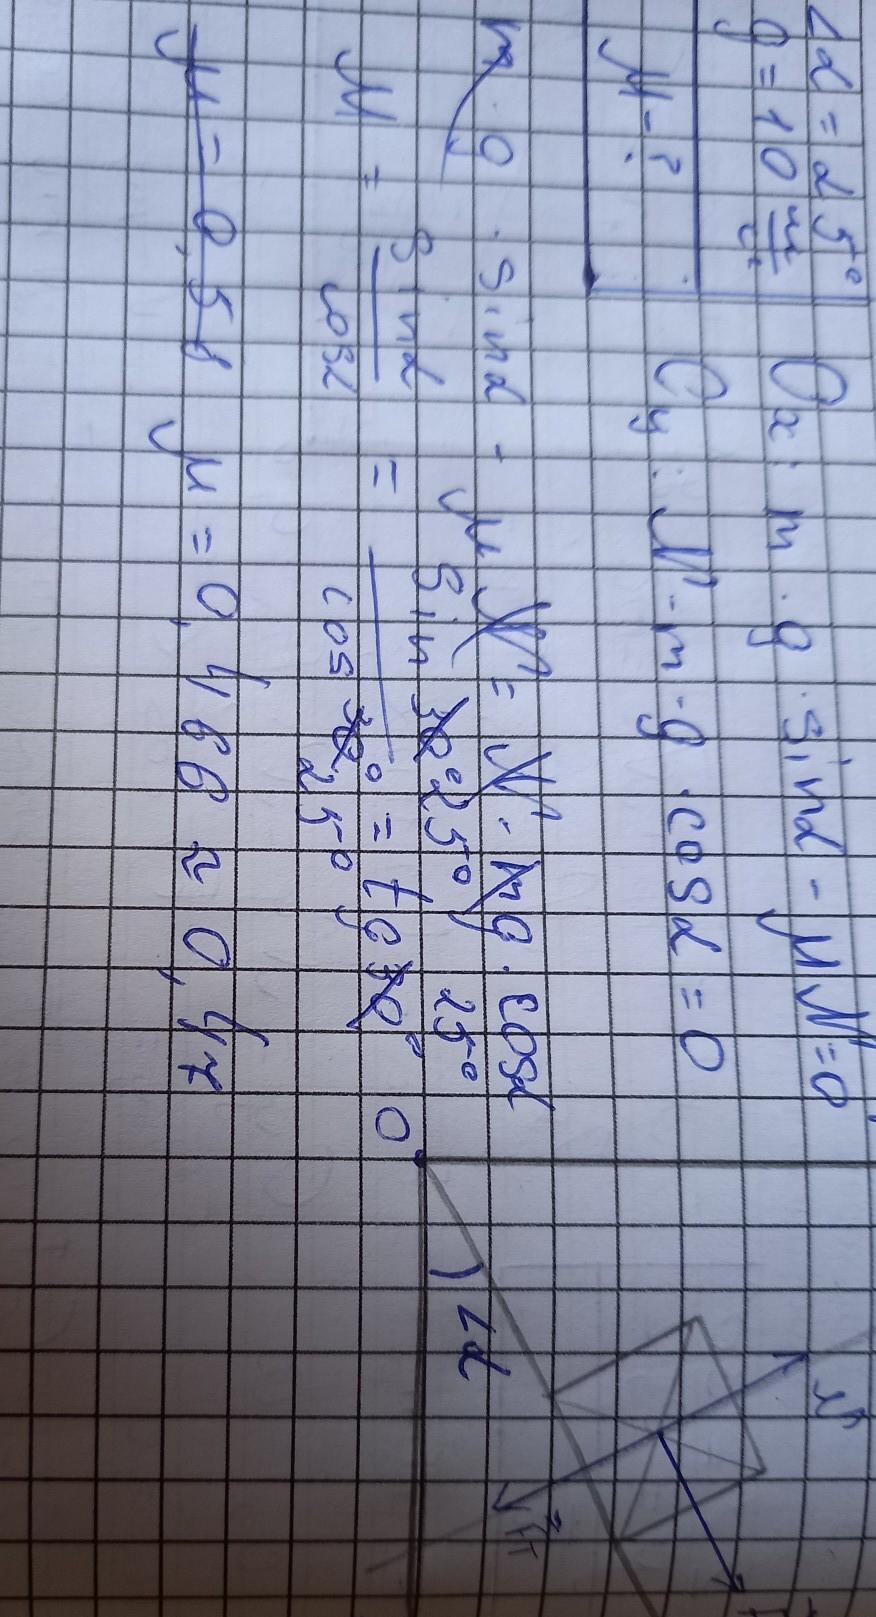 ∠α = 25°
g = 10 м/с²
μ - ?
Ox: m · g · sinα - μN = 0
Oy: N - m · g · cosα = 0
m · g · sinα - μN = N - mg · cosα
μ = sinα/cosα = sin 30° 25°/cos 30° 25° = tg 30° 25°
μ = 0,58 μ = 0,466 ≈ 0,47
O
∠α
N
Fт